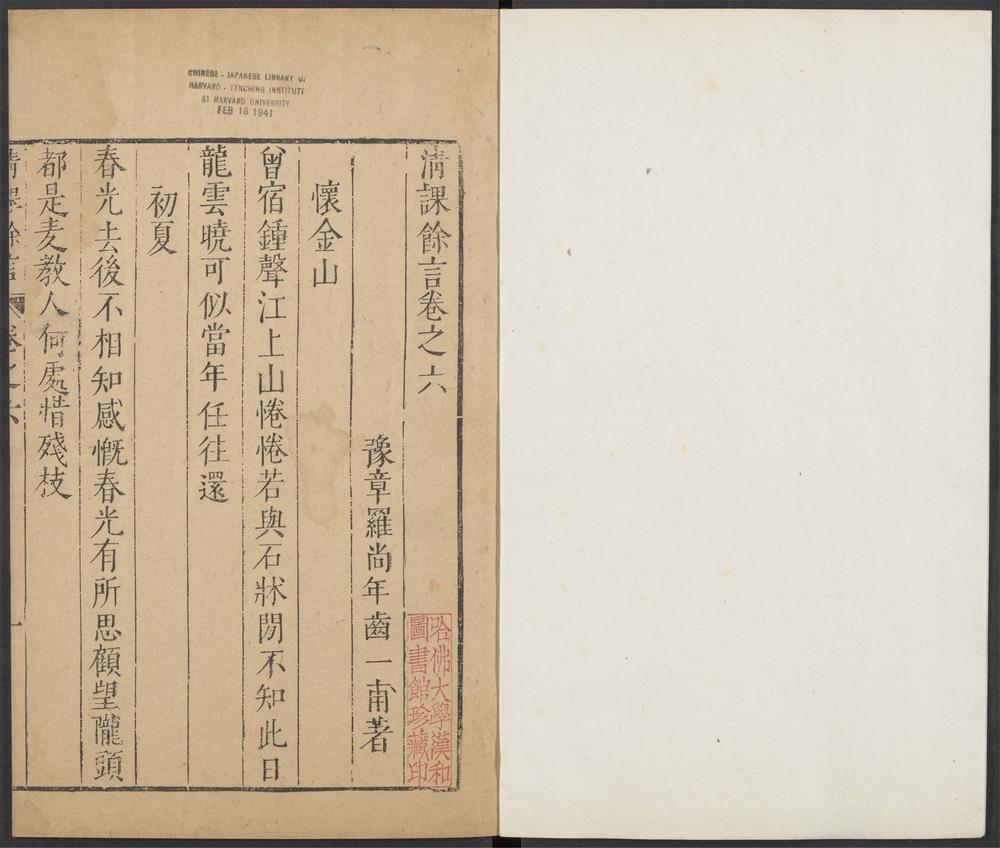 CHINESE - JAPANESE LIBRARY OF
HARVARD - YENCHING INSTITUTE
AT HARVARD UNIVERSITY
FEB 18 1941
清課餘言卷之六
豫章羅尚年齒一甫著
哈佛大學漢和
圖書館珍藏印
懷金山
曾宿鍾聲江上山惓惓若與石牀閒不知此日
龍雲曉可似當年任往還
初夏
春光去後不相知感慨春光有所思顧望隴頭
都是麦教人何處惜殘枝
清課餘言 卷之六 一